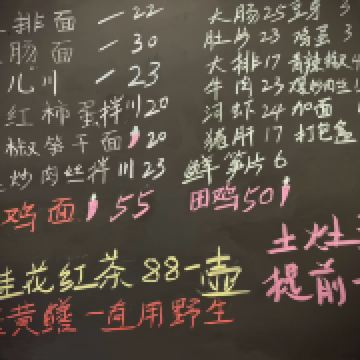 排面 — 22
肠面 — 30
儿川 — 23
红柿蛋拌川20
椒笋干面 20
炒肉丝拌川23
鸡面 55
大肠25
肚片23 鸡蛋3
大排17 青辣椒
牛肉23
河虾24 加面
猪肝17 打包盒
鲜笋片6
田鸡50
桂花红茶88一壶
黄鳝一直用野生
土灶
提前